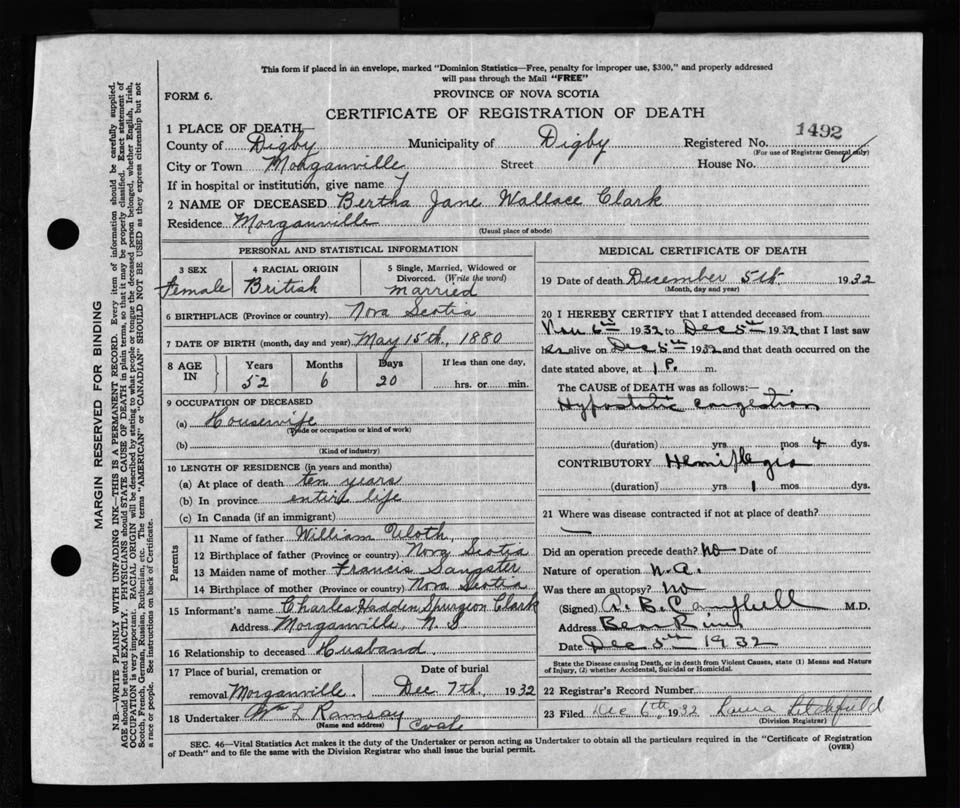 This form if placed in an envelope, marked "Dominion Statistics—Free, penalty for improper use, $300," and properly addressed
will pass through the Mail "FREE"
FORM 6.
PROVINCE OF NOVA SCOTIA
CERTIFICATE OF REGISTRATION OF DEATH
1 PLACE OF DEATH—
County of Digby Municipality of Digby Registered No. 1492
(For use of Registrar General only)
City or Town Morganville Street House No.
If in hospital or institution, give name
2 NAME OF DECEASED Bertha Jane Wallace Clark
Residence Morganville
(Usual place of abode)
PERSONAL AND STATISTICAL INFORMATION
3 SEX Female
4 RACIAL ORIGIN British
5 Single, Married, Widowed or Divorced. (Write the word) married
6 BIRTHPLACE (Province or country) Nova Scotia
7 DATE OF BIRTH (month, day and year) May 15th, 1880
8 AGE IN Years 52 Months 6 Days 20 If less than one day, hrs. or min.
9 OCCUPATION OF DECEASED
(a) Housewife
(Trade or occupation or kind of work)
(b)
(Kind of industry)
10 LENGTH OF RESIDENCE (in years and months)
(a) At place of death ten years
(b) In province entire life
(c) In Canada (if an immigrant)
Parents
11 Name of father William Uloth
12 Birthplace of father (Province or country) Nova Scotia
13 Maiden name of mother Francis Sangster
14 Birthplace of mother (Province or country) Nova Scotia
15 Informant's name Charles Hadden Spurgeon Clark
Address Morganville, N. S
16 Relationship to deceased Husband
17 Place of burial, cremation or removal Morganville Date of burial Dec 7th, 1932
18 Undertaker Wm L Ramsay
(Name and address)
MEDICAL CERTIFICATE OF DEATH
19 Date of death December 5th 1932
(Month, day and year)
20 I HEREBY CERTIFY that I attended deceased from
Nov 6th 1932 to Dec 5th 1932 that I last saw
her alive on Dec 5th 1932 and that death occurred on the
date stated above, at 1 P. m.
The CAUSE of DEATH was as follows:—
Hypostatic congestion
(duration) yrs mos 4 dys.
CONTRIBUTORY Hemiplegia
(duration) yrs 1 mos dys.
21 Where was disease contracted if not at place of death?
—
Did an operation precede death? No Date of
Nature of operation N.A.
Was there an autopsy? No
(Signed) A. B. Campbell M.D.
Address Bear River
Date Dec 5th 1932
State the Disease causing Death, or in death from Violent Causes, state (1) Means and Nature
of Injury, (2) whether Accidental, Suicidal or Homicidal.
22 Registrar's Record Number
23 Filed Dec 6th 1932 Laura Litchfield
(Division Registrar)
SEC. 46—Vital Statistics Act makes it the duty of the Undertaker or person acting as Undertaker to obtain all the particulars required in the "Certificate of Registration
of Death" and to file the same with the Division Registrar who shall issue the burial permit.
(OVER)
MARGIN RESERVED FOR BINDING
N.B.—WRITE PLAINLY WITH UNFADING INK—THIS IS A PERMANENT RECORD. Every item of information should be carefully supplied.
AGE should be stated EXACTLY. PHYSICIANS should STATE CAUSE OF DEATH in plain terms, so that it may be properly classified. Exact statement of
OCCUPATION is very important. RACIAL ORIGIN will be described by stating to what people or tongue the deceased person belonged, whether English, Irish,
Scotch, French, German, Russian, Ruthenian, etc. The terms "AMERICAN" or "CANADIAN" SHOULD NOT BE USED as they express citizenship but not
a race or people. See instructions on back of Certificate.